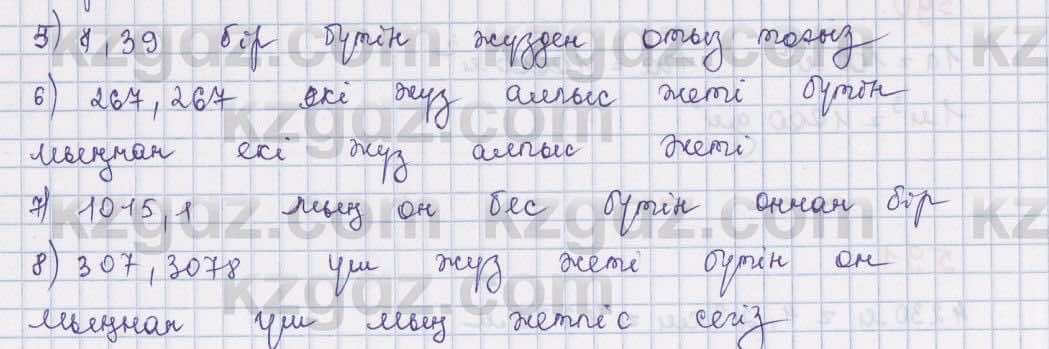 5) 1,39 бір бүтін жүзден отыз тоғыз
6) 267,267 екі жүз алпыс жеті бүтін
мыңнан екі жүз алпыс жеті
7) 1015,1 мың он бес бүтін оннан бір
8) 307,3078 үш жүз жеті бүтін он
мыңнан үш мың жетпіс сегіз